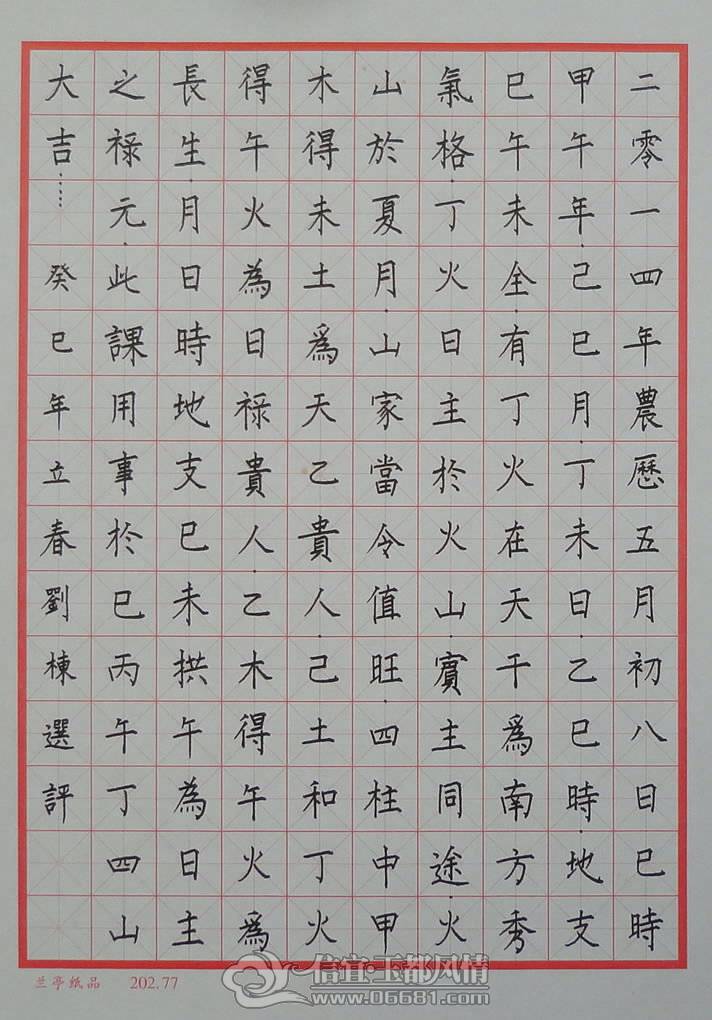 二零一四年農歷五月初八日巳時
甲午年·己巳月·丁未日·乙巳時·地支
巳午未全·有丁火在天干為南方秀
氣格·丁火日主於火山·賓主同途·火
山於夏月·山家當令值旺·四柱中甲
木得未土為天乙貴人·己土和丁火
得午火為日祿貴人·乙木得午火為
長生·月日時地支巳未拱午為日主
之祿元·此課用事於巳丙午丁四山
大吉……癸巳年立春劉棟選評
兰亭纸品 202.77
信宜·玉都风情
www.06681.com